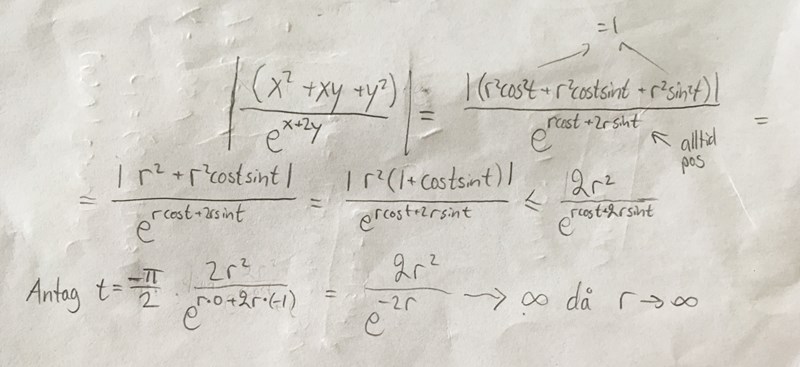 =1
|(x² + xy + y²) / e^(x+2y)| = |(r²cos²t + r²costsint + r²sin²t)| / e^(rcost+2rsint) =
alltid
pos
= |r² + r²costsint| / e^(rcost+2rsint) = |r²(1+costsint)| / e^(rcost+2rsint) ≤ 2r² / e^(rcost+2rsint)
Antag t = -π/2 2r² / e^(r·0+2r·(-1)) = 2r² / e^(-2r) → ∞ då r → ∞